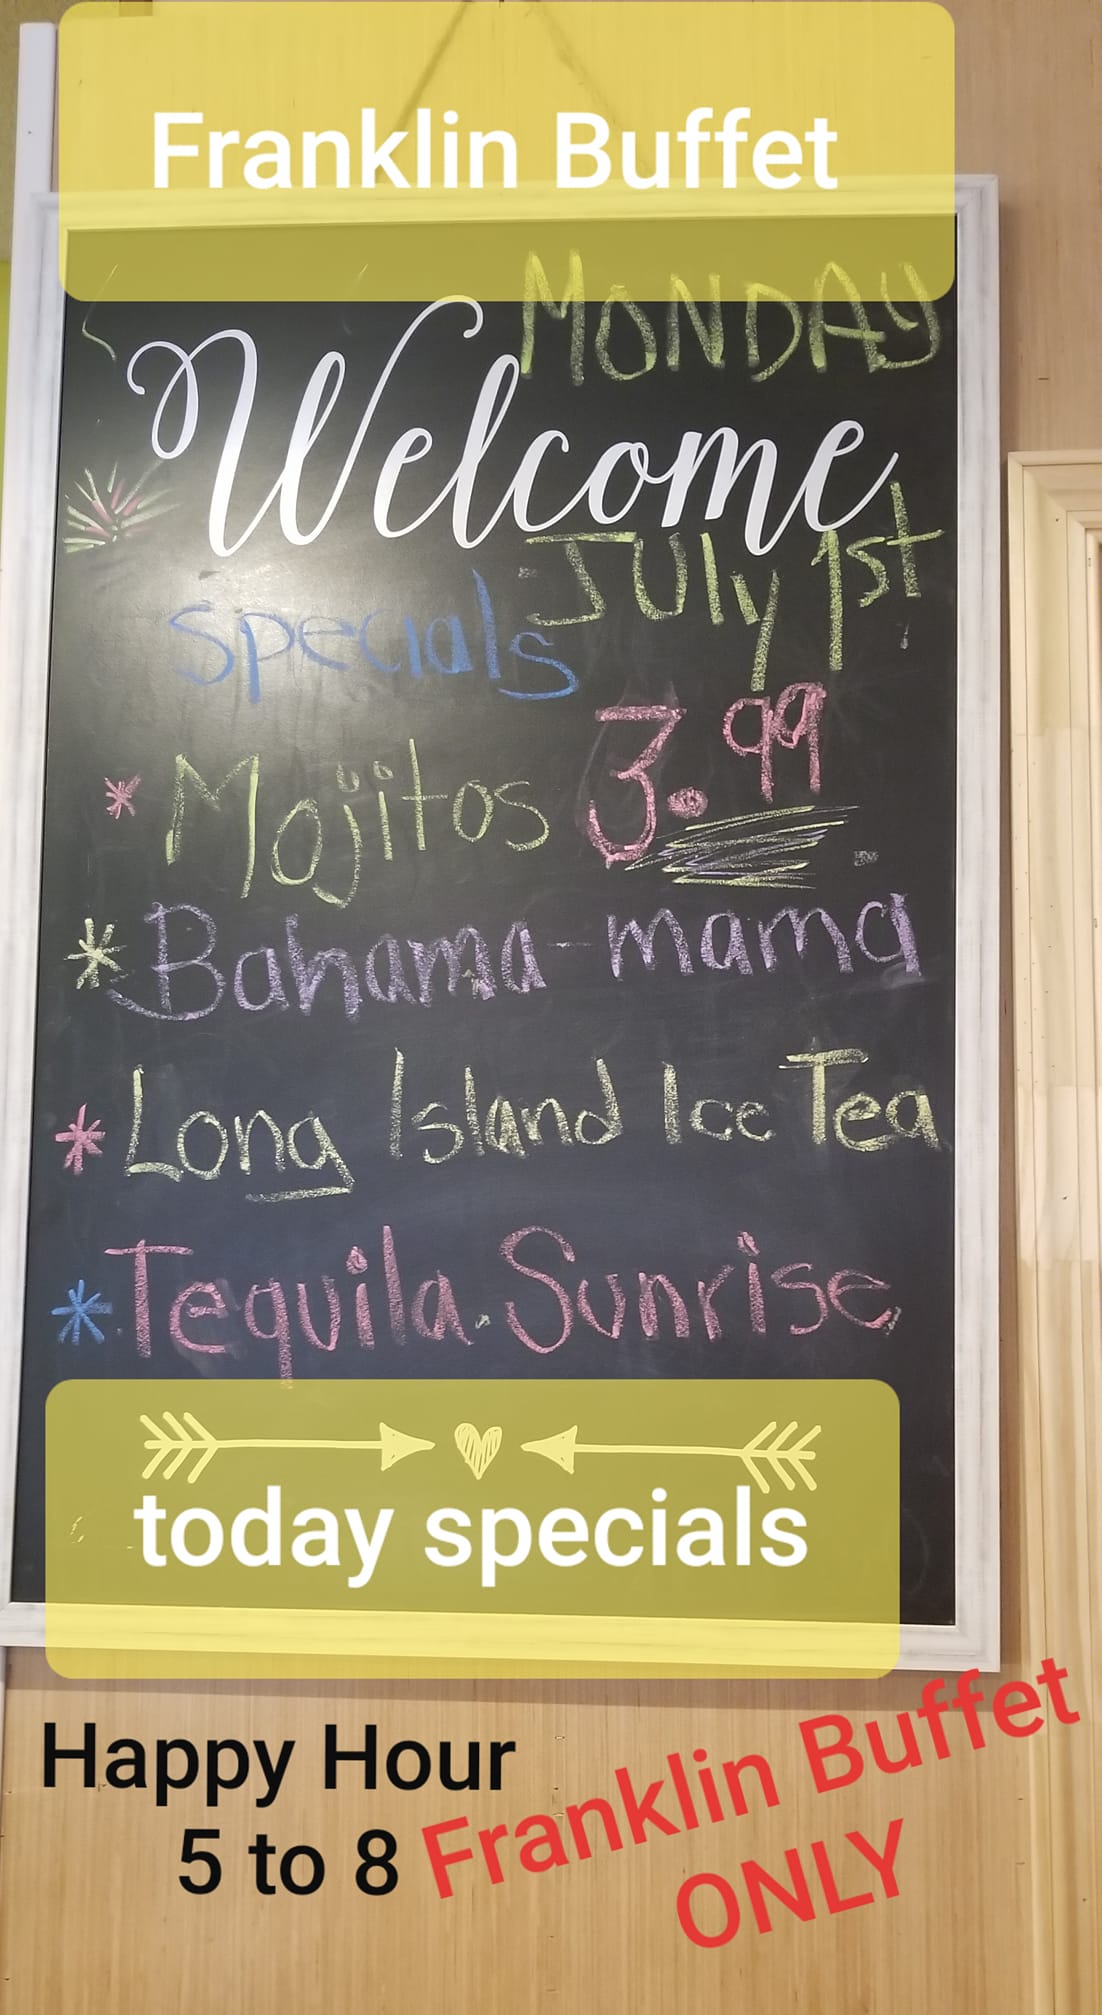 Franklin Buffet
MONDAY
Welcome
July 1st
specials
* Mojitos 3.99
* Bahama-mama
* Long Island Ice Tea
* Tequila Sunrise
today specials
Happy Hour
5 to 8
Franklin Buffet
ONLY